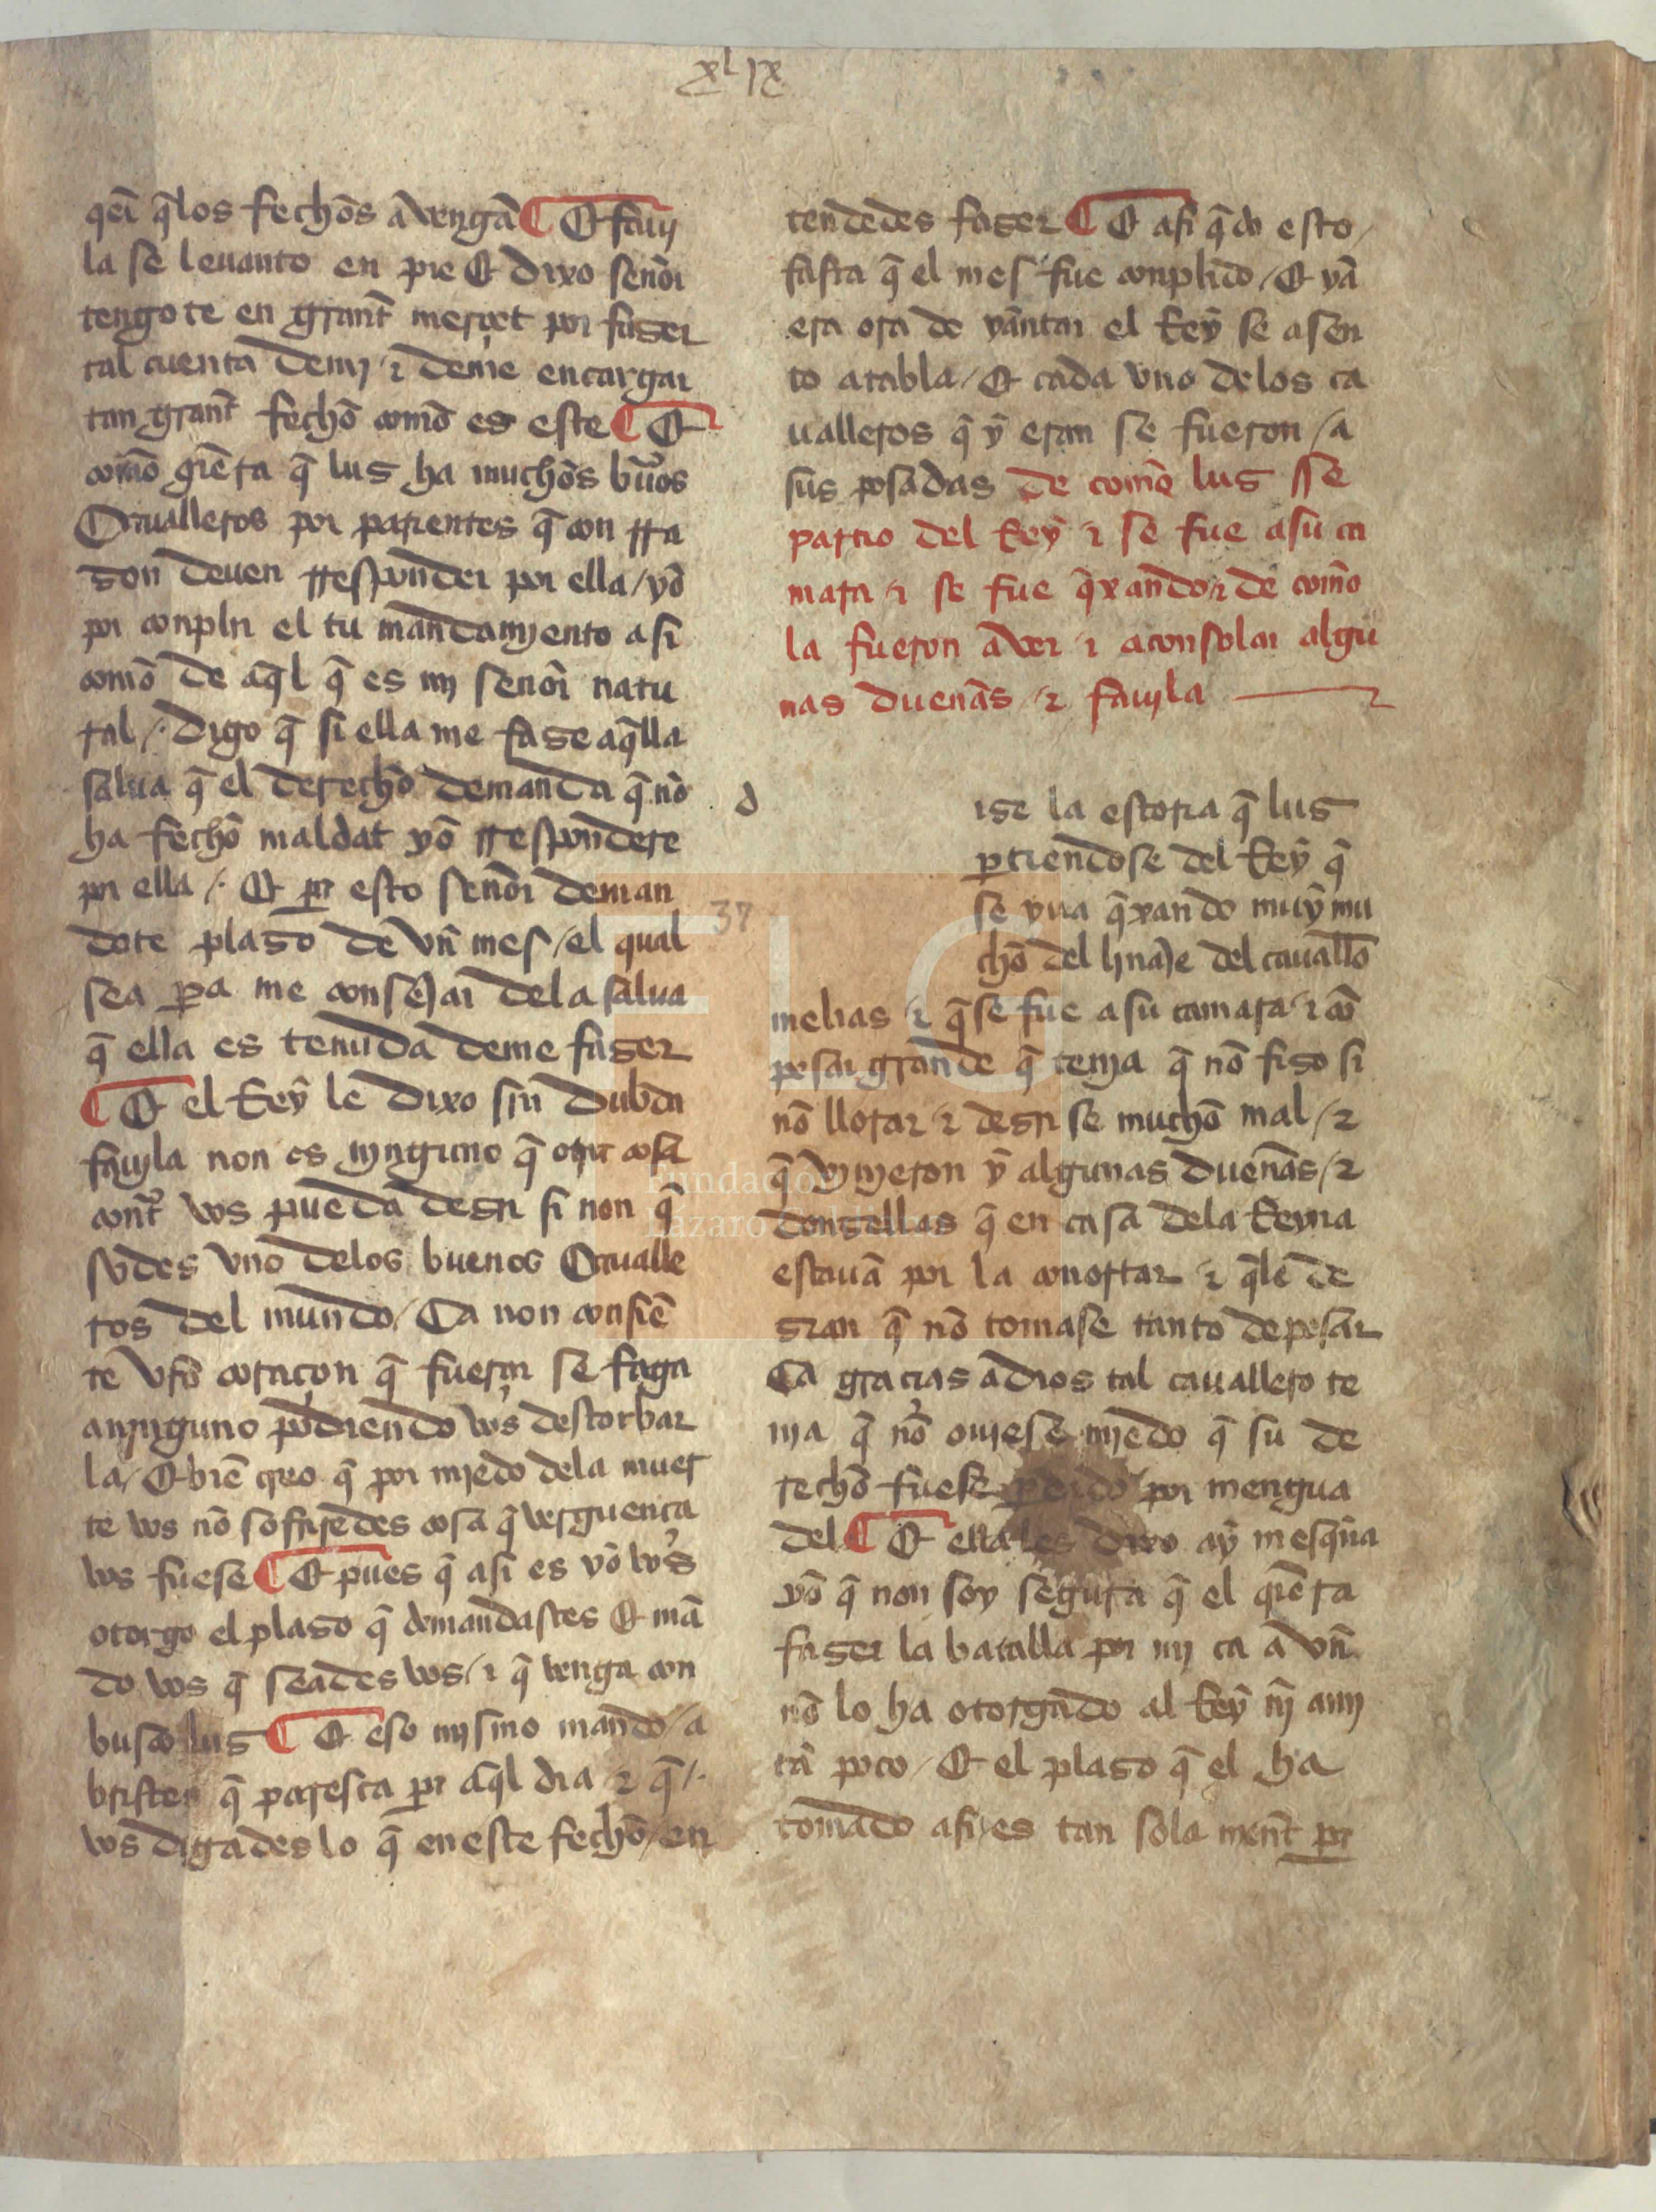 xl ix
qͥer q̃ los fechõs avengã ¶ Et fauj
la se leuanto en pie Et dixo señor
tengo te en grant merçet por faser
tal cuenta demj / ⁊ deme encargar
tan grant fechõ comõ es este ¶ Et
comõ qͥera q̃ lus ha muchõs buẽos
Caualleros por parientes q̃ con rra
son deuen rresponder por ella / yo
por conplir el tu mandamjento asi
comõ de aq̃l q̃ es mj señor natu
ral / digo q̃ si ella me fase aq̃lla
salua q̃ el derechõ demanda q̃ nõ
ha fechõ maldat yo rrespondere
por ella / Et por esto señor deman
dote plaso de vñ mes / el qual
sea pa me consejar dela salua
q̃ ella es tenuda deme faser
¶ Et el Rey le dixo sin dubda
faujla non es njnguno q̃ otra cosa
contͣ vos pueda desir si non q̃
sodes vno delos buenos Caualle
ros del mundo / Ca non consiẽ
te vr̃o coraçon q̃ fuerça se faga
anjnguno podiendo vos destorbar
la / Et biẽ creo q̃ por mjedo dela muer
te vos nõ sofriredes cosa q̃ verguença
vos fuese ¶ Et pues q̃ asi es yo vos
otorgo el plaso q̃ demandastes Et mã
do vos q̃ seades vos / ⁊ q̃ venga con
busco lus ¶ Et eso mjsmo mando / a
bristes q̃ paresca por aq̃l dia ⁊ q̃ /.
vos digades lo q̃ en este fechõ / en
tendedes faser ¶ Et asi q̃do esto /
fasta q̃ el mes fue conplido / Et ya
era ora de yantar el Rey se asen
to atabla / Et cada vno delos ca
ualleros q̃ y eran se fueron / a
sus posadas de comõ lus sse
partio del Rey ⁊ se fue asu ca
mara / ⁊ se fue q̃xando ⁊ de comõ
la fueron aver ⁊ aconsolar algu
nas dueñas / ⁊ faujla
d
ise la estoria q̃ lus
partiendose del Rey q̃
se yua q̃xando muy mu
chõ del linaje del cauallõ
37
melias / ⁊ q̃ se fue asu camara / ⁊ cõ
pesar grande q̃ tenja q̃ nõ fiso si
nõ llorar / ⁊ desir se muchõ mal / ⁊
q̃ vinjeron y algunas dueñas / ⁊
donsellas q̃ en casa dela Reyna
estauã por la conortar / ⁊ q̃le de
sian q̃ nõ tomase tanto de pesar
Ca gracias adios tal cauallero te
nja q̃ nõ oujese mjedo q̃ su de
rechõ fuese perdido por mengua
del ¶ Et ella les dixo ay mesqͥna
yo q̃ non soy segura q̃ el qͥera
faser la batalla por mj ca avñ
nõ lo ha otorgado al Rey nj amj
tã poco / Et el plaso q̃ el ha
tomado asi es tan sola ment por
FLG
Fundación
Lázaro Galdiano